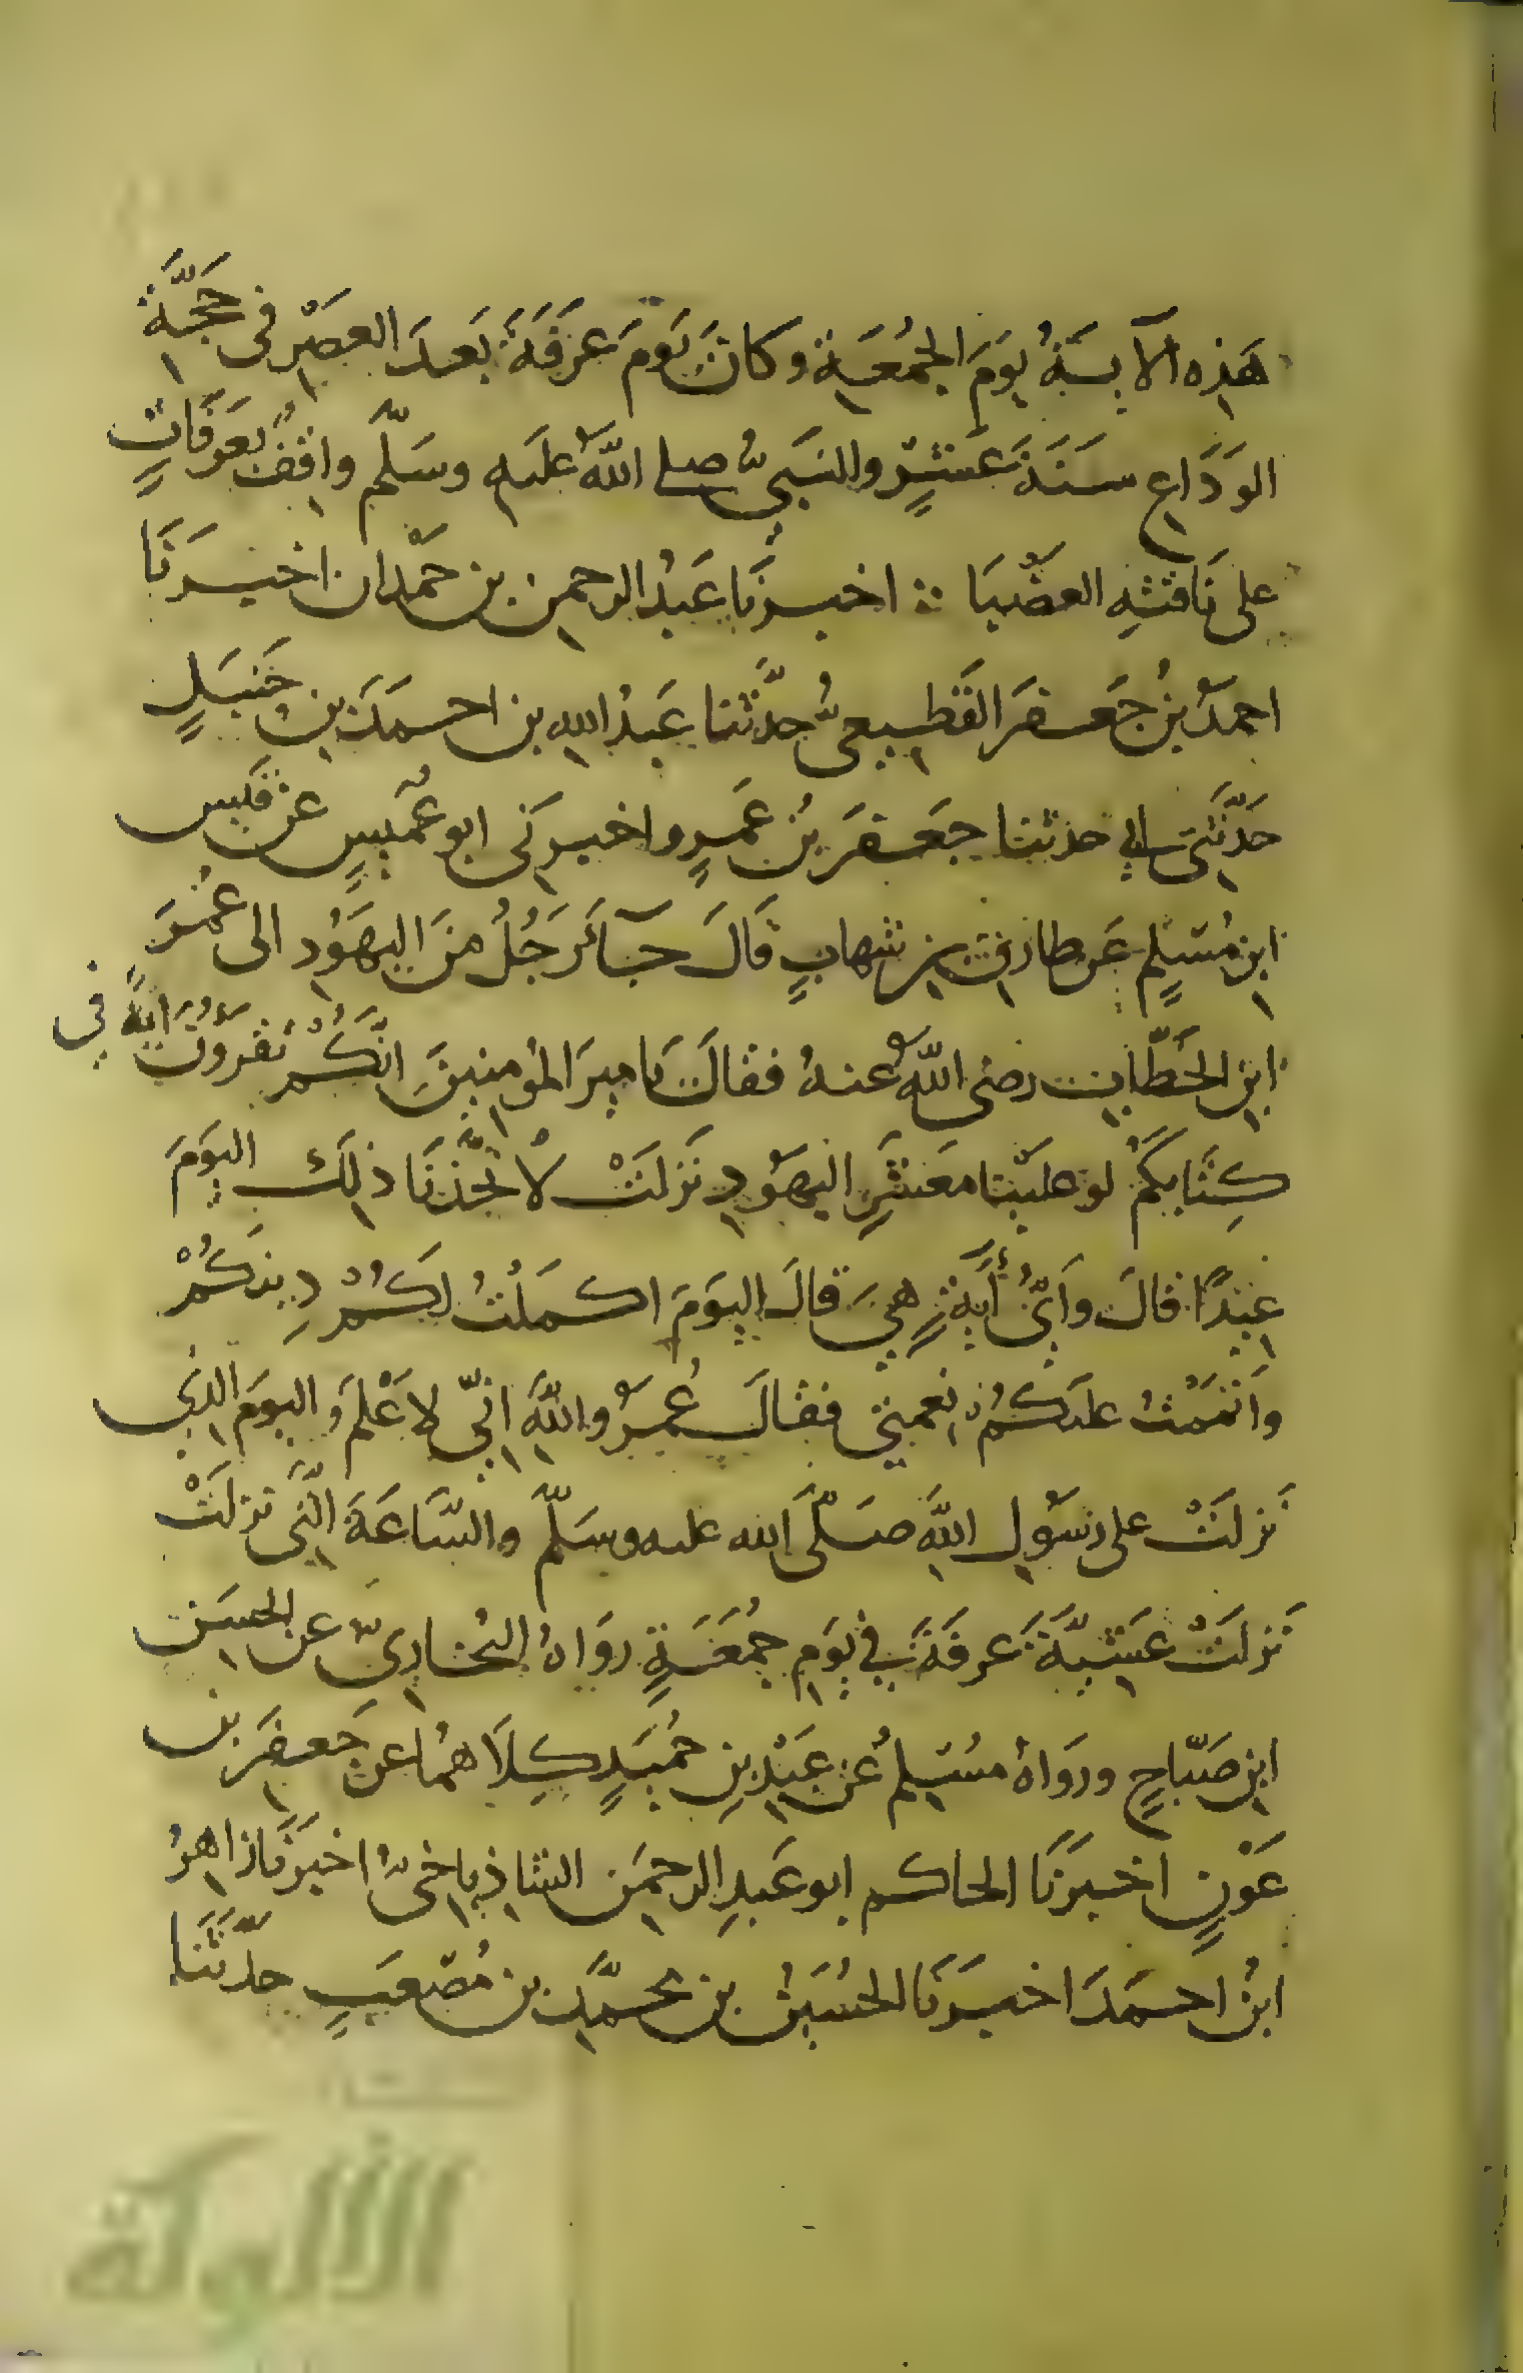 هَذِه الآيَةُ يَوْمَ الجُمُعَةِ وكانَ يَوْمَ عَرَفَةَ بَعدَ العصْرِ في حَجَّةِ
الوَدَاعِ سَنَةَ عَشْرٍ والنَبيُّ صلى اللهُ عليه وسَلّم واقِفٌ بعَرَفَاتٍ
على نَاقتِهِ العضْبَا اخبرَنَا عَبْدُ الرحمن بن حَمْدان اخبَرَنَا
احمدُ بنُ جَعفَر القَطِيعيُّ حدَّثنا عَبدُ اللهِ بن احمَدَ بنِ حَنبَلٍ
حَدَّثَني ابي حدثنا جَعفَر بنُ عَمرٍو اخبرَني ابو عُمَيسٍ عن قَيس
ابنِ مُسْلِمٍ عَن طارق بنِ شِهابٍ قَالَ جَآءَ رَجُلٌ مِنَ اليَهُودِ الى عُمَرَ
ابنِ الخَطّابِ رضى اللهُ عنهُ فقالَ يَا ميرَ المُؤمِنينَ انَّكُمْ تَقْرَؤُنَ ايَةً في
كِتَابِكُمْ لو علَينا مَعشَرِ اليهُودِ نَزلَتْ لاتّخَذْنَا ذلِكَ اليَوْمَ
عِيْدًا قالَ وأَيُّ أَيَةٍ هِيَ قالَ اليَوْمَ اكملْتُ لكُمْ دِينَكُمْ
وأَتْمَمْتُ عليكُمْ نِعْمتِي فقالَ عُمَرُ واللهِ انّي لاعْلَمُ اليومَ الذي
نَزلَتْ على رسُولِ اللهِ صَلّى الله عليه وسَلّم والسَّاعَةَ الّتِي نزلَتْ
نَزلَتْ عَشِيَّةَ عَرفَةَ في يَومِ جُمُعَةٍ روَاهُ البُخَارِيُّ عن الحسَن
ابنِ صَبّاحٍ وروَاهُ مسْلِمٌ عَن عَبْدِ بنِ حُمَيدٍ كِلَاهُما عن جَعفَر بن
عَوْنٍ اخبرَنَا الحاكم ابو عَبدِ الرحمَن الشاذِياخيُّ اخبَرَنَا زَاهِرُ
ابنُ احمَدَ اخبرَنَا الحُسَينُ بن محمَّدِ بن مُصْعَبٍ حدّثَنَا
الألوكة